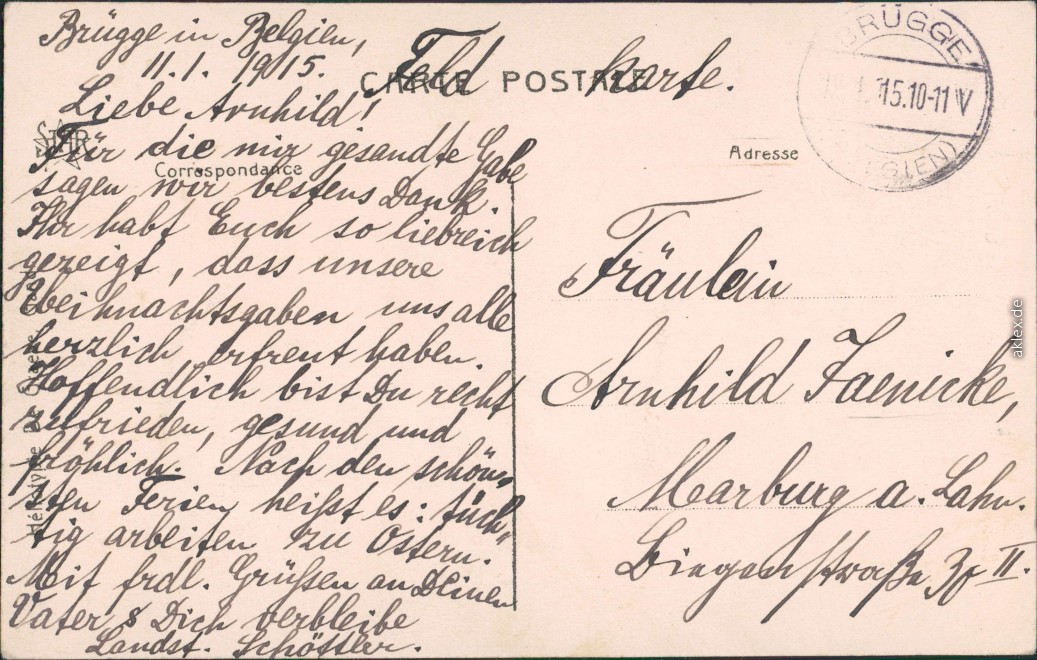 Brügge in Belgien,
11.1. 1915.
Feldkarte.
CARTE POSTALE
Liebe Arnhild!
Für die mir gesandte Gabe
Correspondance
sagen wir bestens Dank.
Ihr habt Euch so liebreich
gezeigt, dass unsere
Weihnachtsgaben uns alle
herzlich erfreut haben.
Hoffendlich bist Du recht
zufrieden, gesund und
fröhlich. Nach den schön„
sten Ferien heißt es: tüch„
tig arbeiten zu Ostern.
Mit frdl. Grüssen an Deinen
Vater & Dich verbleibe
Landst. Schöttler.
BRÜGGE
15.10-11 V
GIEN)
Adresse
Fräulein
Arnhild Jaenicke,
Marburg a. Lahn.
Biegenstraße II.
aklex.de